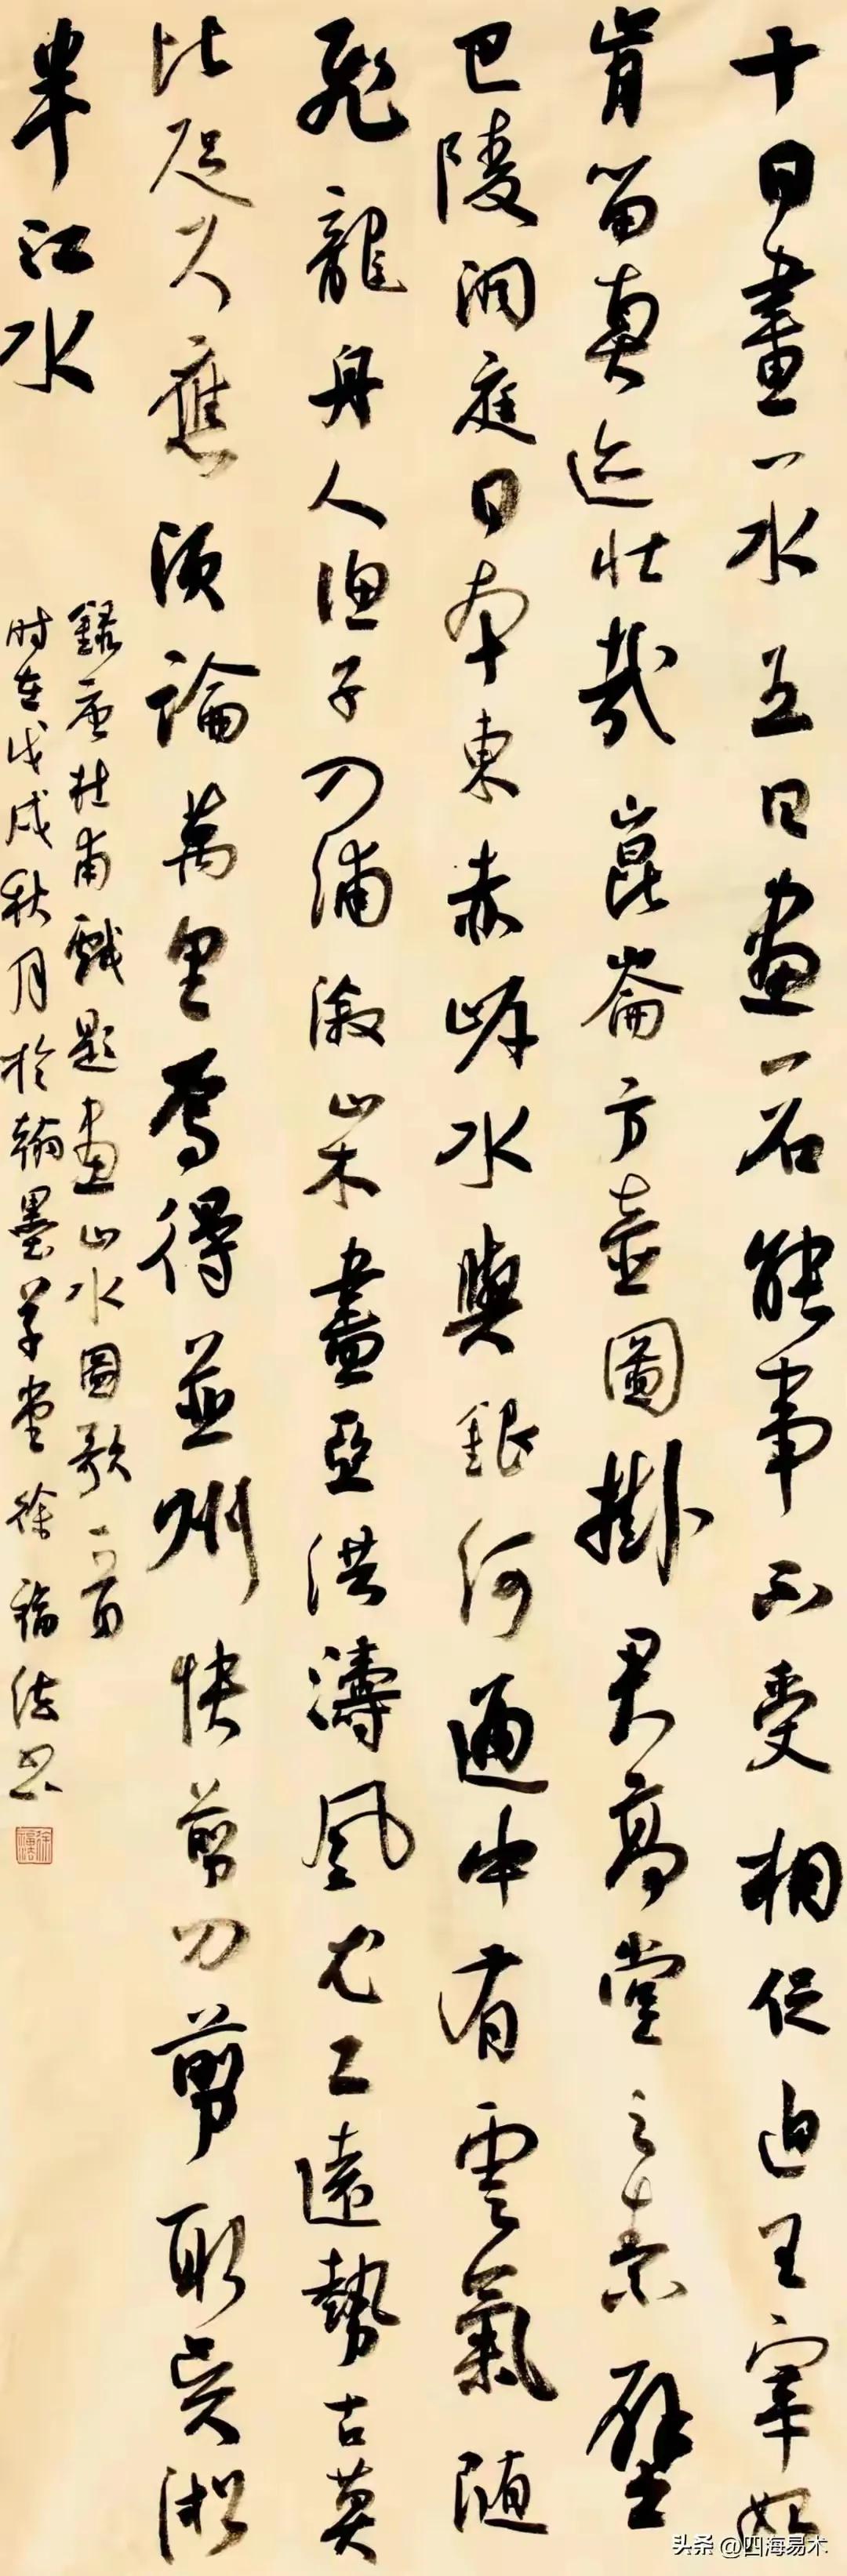 十日畫一水五日畫一石能事不受相促迫王宰始
肯留真迹壯哉崑崙方壺圖掛君高堂之素壁
巴陵洞庭日本東赤岸水與銀河通中有雲氣隨
飛龍舟人漁子入浦溆山木盡亞洪濤風尤工遠勢古莫
比咫尺應須論萬里焉得並州快剪刀剪取吳淞
半江水
錄唐杜甫戲題畫山水圖歌一首
时在戊戌秋月於翰墨草堂徐福法书
头条 @四海易木